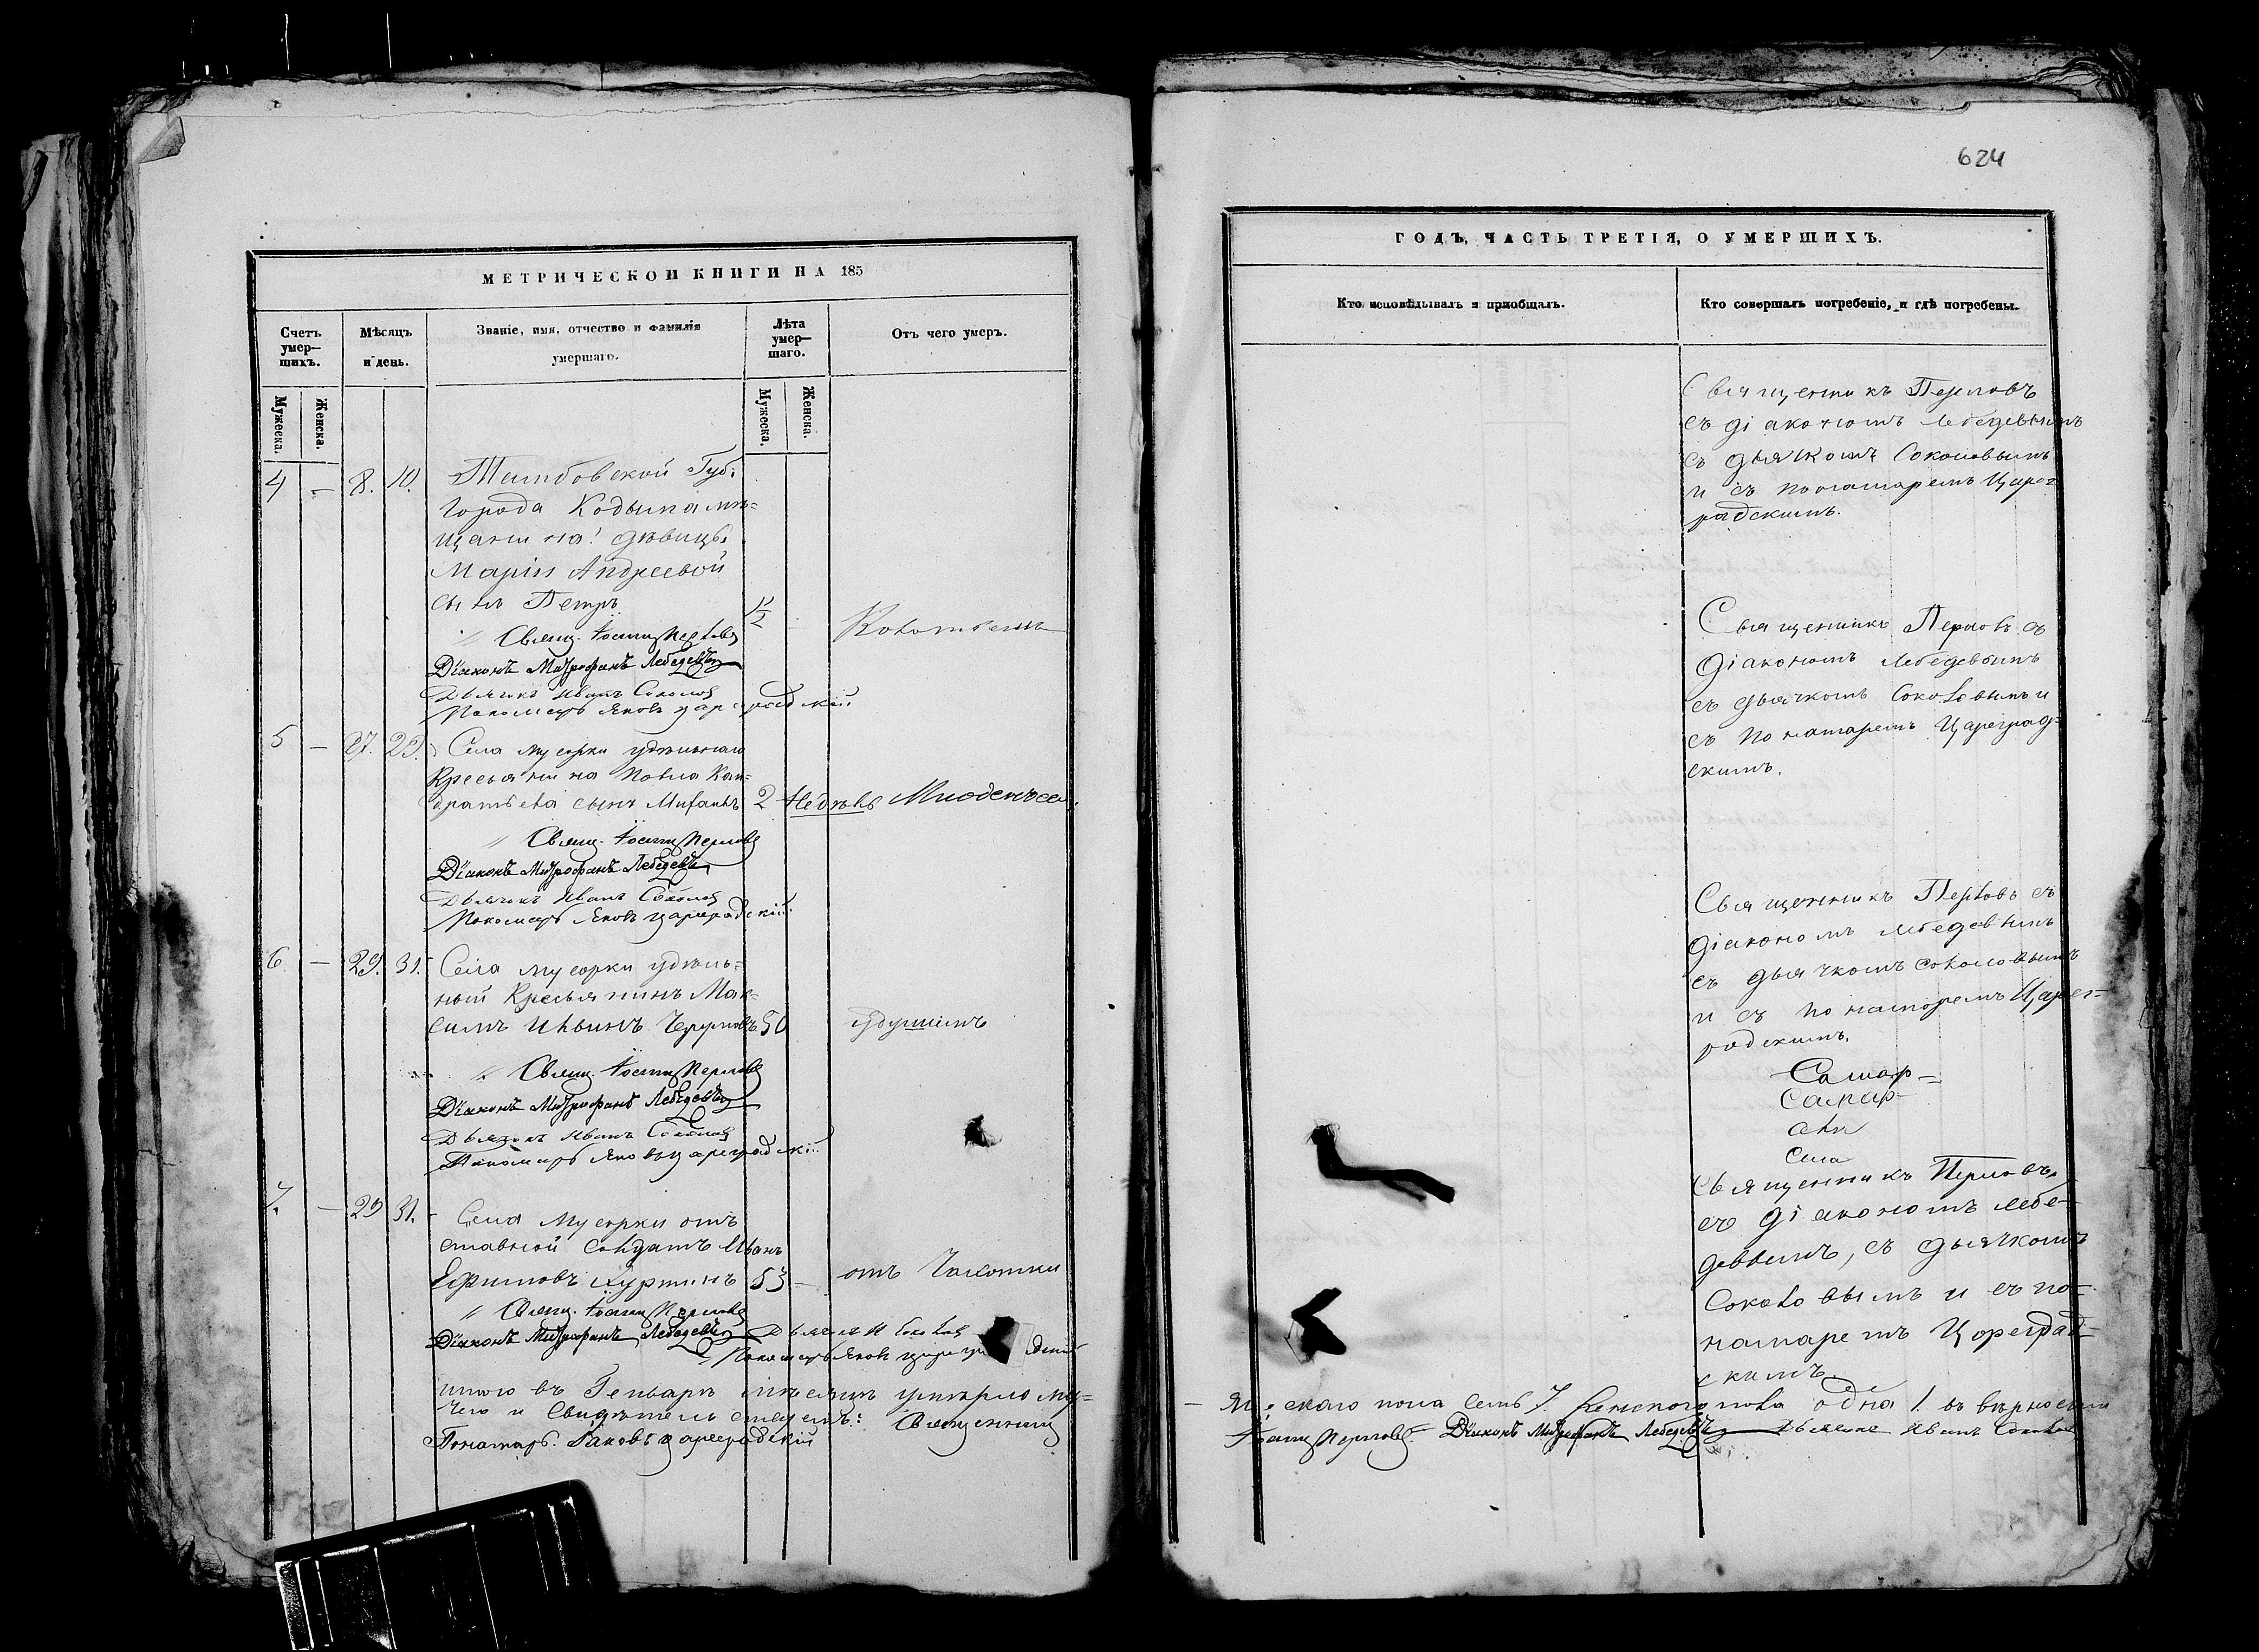 МЕТРИЧЕСКОЙ КНИГИ НА 185
Счетъ умер-шихъ.
Мѣсяцъ и день.
Званіе, имя, отчество и фамилія умершаго.
Лѣта умер-шаго.
Отъ чего умеръ.
Мужеска.
Женска.
Мужеска.
Женска.
4 — 8. 10. Тамбовской Губ:
города Кодыма мѣ=
щанина: дѣвицы
Маріи Андреевой
сынъ Петръ 1/2
Свящ. Іоаннъ Перловъ
Діаконъ Митрофанъ Лебедевъ
Дьячокъ Иванъ Соколовъ
Пономарь Яковъ Цареградскій.
5 — 27. 29. Села Мусорки удѣльнаго
Крестьянина Павла Кан=
дратьева сынъ 2 недѣль Младенческ.
Свящ. Іоаннъ Перловъ
Діаконъ Митрофанъ Лебедевъ
Дьячокъ Иванъ Соколовъ
Пономарь Яковъ Цареградскій.
6 — 29. 31. Села Мусорки удѣль=
ный Крестьянинъ Мак=
симъ 50 удушьемъ
Свящ. Іоаннъ Перловъ
Діаконъ Митрофанъ Лебедевъ
Дьячокъ Иванъ Соколовъ
Пономарь Яковъ Цареградскій.
7. — 29 31. Села Мусорки от
ставной Солдатъ Иванъ
Ефимовъ 53 — отъ Чахотки
Свящ. Іоаннъ Перловъ
Діаконъ Митрофанъ Лебедевъ Дьячокъ И Соколовъ
Пономарь Яковъ Цареградскій
Итого въ Генварѣ мѣсяцѣ умерло му=
чего и Свидѣтельствуемъ: Священникъ
Пономарь Іаковъ Цареградскій
624
ГОДЪ, ЧАСТЬ ТРЕТІЯ, О УМЕРШИХЪ.
Кто исповѣдывалъ и пріобщалъ.
Кто совершалъ погребеніе, и гдѣ погребены.
Священникъ Перловъ
съ діакономъ Лебедевымъ
съ дьячкомъ Соколовымъ
и съ пономаремъ Царег=
радскимъ.
Священникъ Перловъ съ
діакономъ Лебедевымъ
съ дьячкомъ Соколовымъ и
съ пономаремъ Цареград=
скимъ.
Священникъ Перловъ съ
діакономъ Лебедевымъ
съ дьячкомъ Соколовымъ
и съ пономаремъ Царег=
радскимъ.
Самар=
Самар-
Села
Священникъ Перловъ
съ діакономъ Лебе=
девымъ, съ дьячкомъ
Соколовымъ и съ по=
номаремъ Цареград=
скимъ.
— жескаго пола семь 7. Женскаго пола одна 1. въ вѣрности
Іоаннъ Перловъ Діаконъ Митрофанъ Лебедевъ Дьячокъ Иванъ Соколовъ